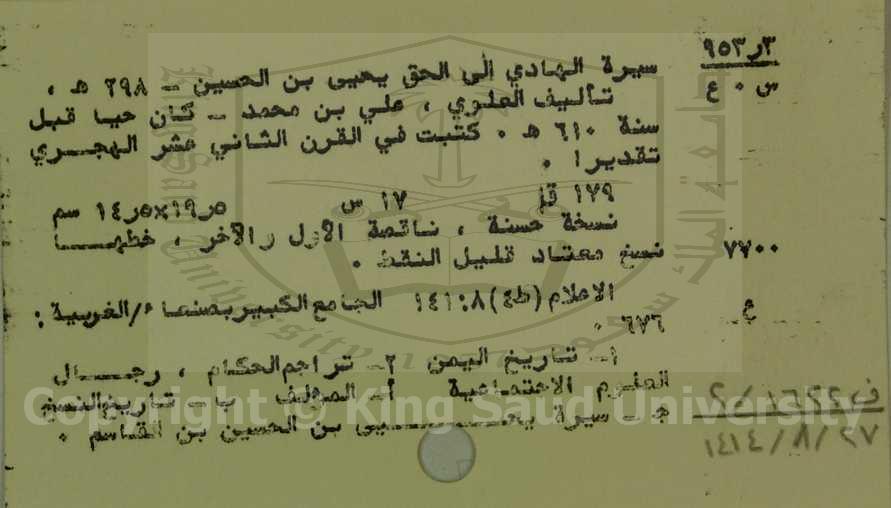 ٩٥٣ر٣
سيرة الهادي إلى الحق يحيى بن الحسين ـ ٢٩٨ هـ ،
س ٠ ع
تأليف العلوي ، علي بن محمد ـ كان حيا قبل
سنة ٦١٠ هـ ٠ كتبت في القرن الثاني عشر الهجري
تقديرا ٠
١٧٩ ق
١٧ س
١٩ر٥×١٤ر٥ سم
نسخة حسنة ، ناقصة الأول والآخر ، خطها
٧٧٠٠
نسخ معتاد قليل النقط ٠
الاعلام (ط٤) ٨:١٤١ الجامع الكبير بصنعاء/الغربية :
٦٧٦ ٠
ع
١ـ تاريخ اليمن ٢ـ تراجم الحكام ، رجال
العلوم الاجتماعية أـ المؤلف ب ـ تاريخ النسخ
جـ ـ سيرة يحيى بن الحسين بن القاسم ٠
١٤١٤/٨/٢٧
Copyright © King Saud University